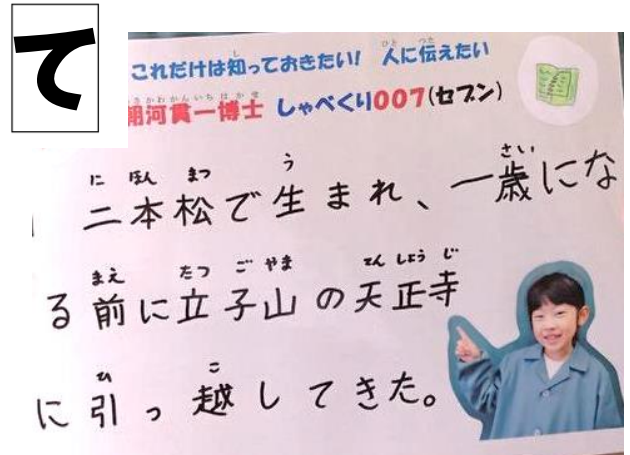 て
これだけは知っておきたい! 人に伝えたい
朝河貫一博士 しゃべくり007(セブン)
二本松で生まれ、一歳にな
る前に立子山の天正寺
に引っ越してきた。